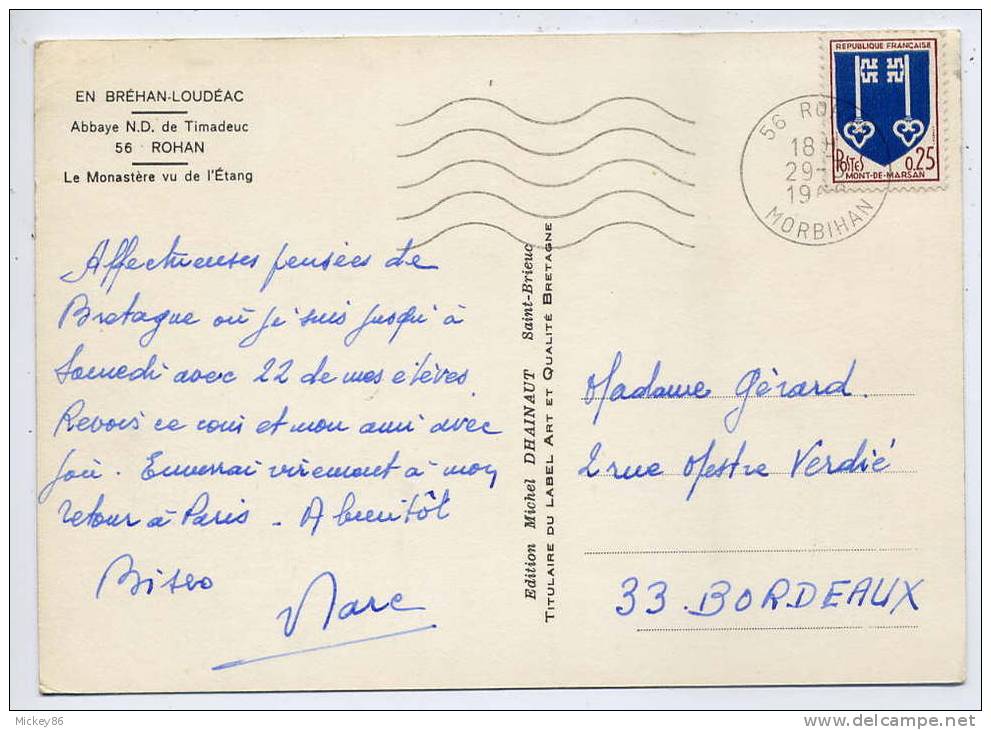 EN BRÉHAN-LOUDÉAC
Abbaye N.D. de Timadeuc
56 ROHAN
Le Monastère vu de l'Étang
Affectueuses pensées de
Bretagne où je suis jusqu'à
Samedi avec 22 de mes élèves
Revois ce coin et mon ami avec
joie. Enverrai virement à mon
retour à Paris - A bientôt
Marc
Edition Michel DHAINAUT Saint-Brieuc
TITULAIRE DU LABEL ART ET QUALITÉ BRETAGNE
RÉPUBLIQUE FRANÇAISE
POSTES 0,25
MONT-DE-MARSAN
56
18 H
29
MORBIHAN
Madame Gérard.
2 rue Mestre Verdié
33. BORDEAUX
Mickey86
www.delcampe.net